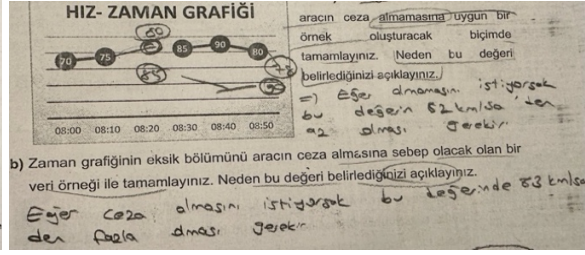 HIZ- ZAMAN GRAFİĞİ
80
70 75 85 90 80
78
85
90
08:00 08:10 08:20 08:30 08:40 08:50
aracın ceza almamasına uygun bir
örnek oluşturacak biçimde
tamamlayınız. Neden bu değeri
belirlediğinizi açıklayınız.
=) Eğer almamasını istiyorsak
bu değerin 82 km/sa 'den
az olması gerekir.
b) Zaman grafiğinin eksik bölümünü aracın ceza almasına sebep olacak olan bir
veri örneği ile tamamlayınız. Neden bu değeri belirlediğinizi açıklayınız.
Eğer ceza almasını istiyorsak bu değerinde 83 km/sa
den fazla olması gerekir